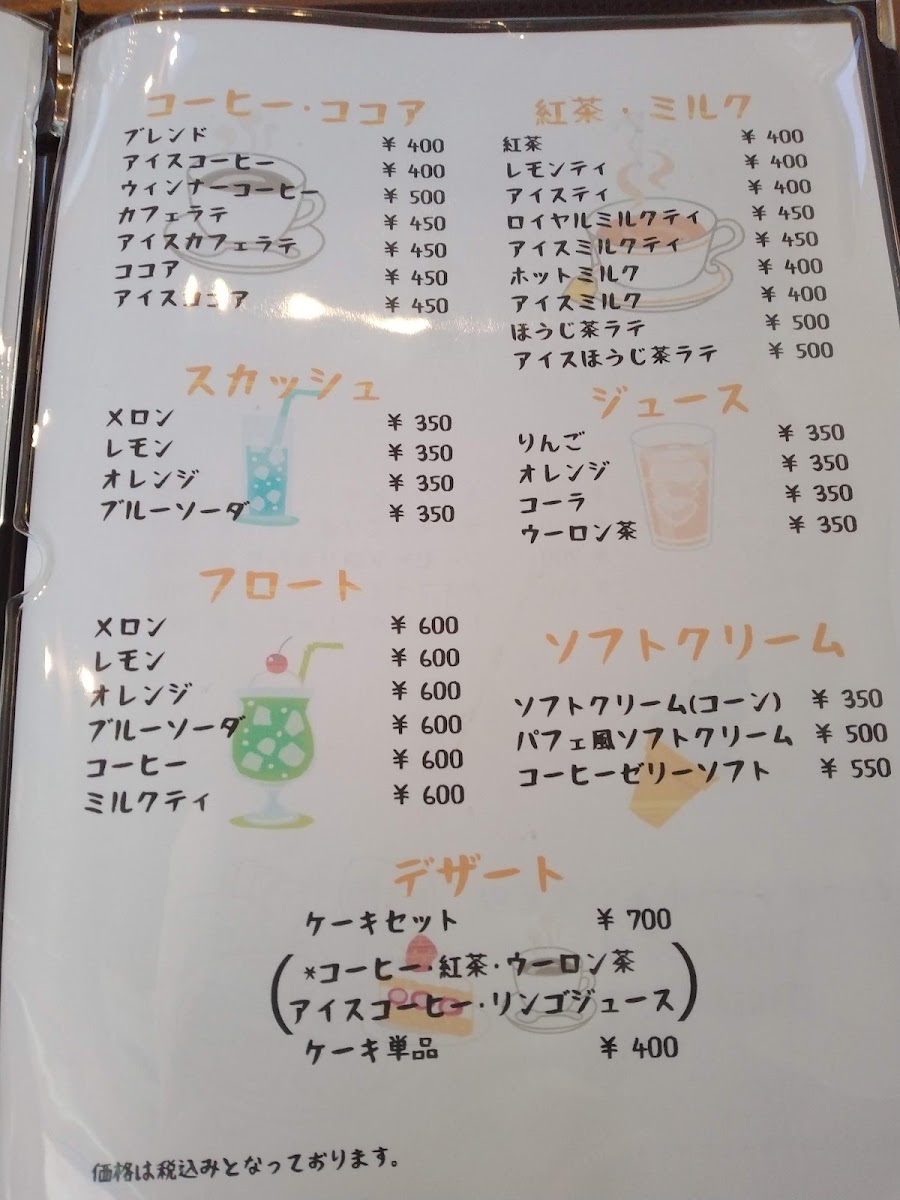 コーヒー・ココア
ブレンド ¥ 400
アイスコーヒー ¥ 400
ウィンナーコーヒー ¥ 500
カフェラテ ¥ 450
アイスカフェラテ ¥ 450
ココア ¥ 450
アイスココア ¥ 450
紅茶・ミルク
紅茶 ¥ 400
レモンティ ¥ 400
アイスティ ¥ 400
ロイヤルミルクティ ¥ 450
アイスミルクティ ¥ 450
ホットミルク ¥ 400
アイスミルク ¥ 400
ほうじ茶ラテ ¥ 500
アイスほうじ茶ラテ ¥ 500
スカッシュ
メロン ¥ 350
レモン ¥ 350
オレンジ ¥ 350
ブルーソーダ ¥ 350
ジュース
りんご ¥ 350
オレンジ ¥ 350
コーラ ¥ 350
ウーロン茶 ¥ 350
フロート
メロン ¥ 600
レモン ¥ 600
オレンジ ¥ 600
ブルーソーダ ¥ 600
コーヒー ¥ 600
ミルクティ ¥ 600
ソフトクリーム
ソフトクリーム(コーン) ¥ 350
パフェ風ソフトクリーム ¥ 500
コーヒーゼリーソフト ¥ 550
デザート
ケーキセット ¥ 700
(*コーヒー・紅茶・ウーロン茶
アイスコーヒー・リンゴジュース)
ケーキ単品 ¥ 400
価格は税込みとなっております。